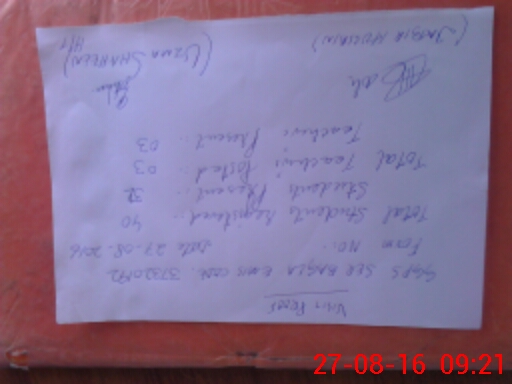 Visit Proof
GGPS SER BAGLA EMIS code. 373201
Form No:. Date 27.08.2016
Total Students Registered:. 40
Students Present:.
Total Teachers Posted:. 03
Teachers Present:. 03
(UZMA SHAHEEN)
H/T
27-08-16 09:21